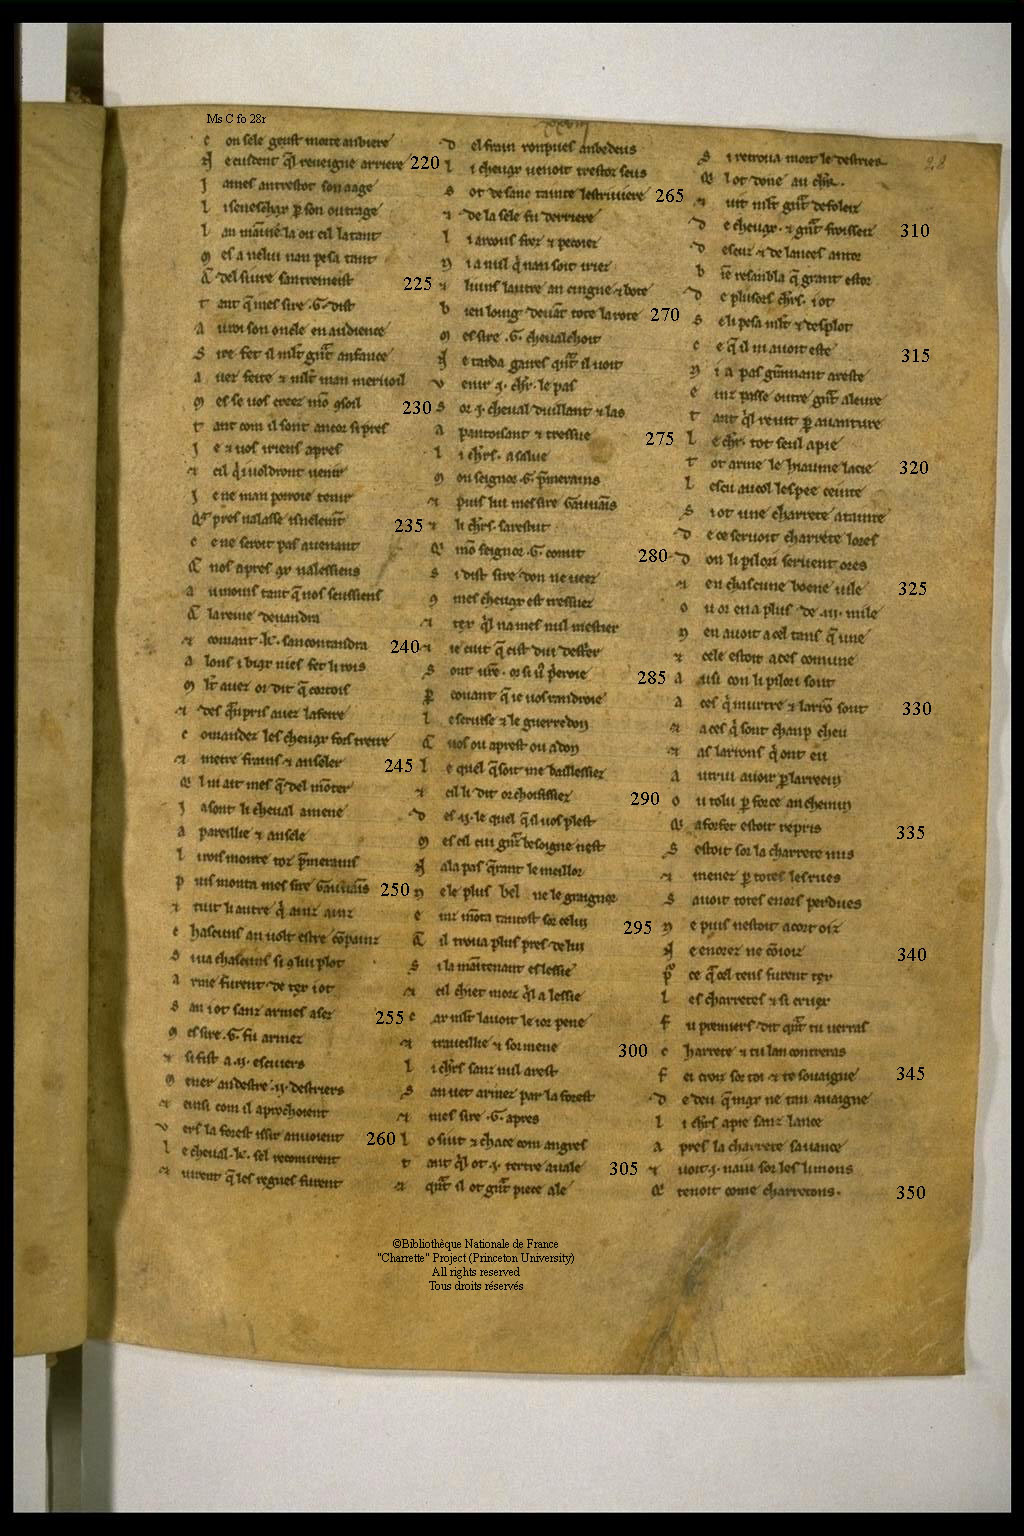 Ms C fo 28r
xxviij
28
C on sele geust morte anbiere
N e cuident ql reueigne arriere 220
J ames antrestot son aage
L i seneschax p son outrage
L an mainne la ou cil latant
M es a nelui nan pesa tant
Q del siure santremeist 225
T ant q mes sire .G. dist
A u roi son oncle en audience
S ire fet il mlt gnt anfance
A uez feite & mlt man meruoil
M es se uos creez mo gsoil 230
T ant com il sont ancor si pres
J e & uos iriens apres
& cil q i uoldront uenir
J e ne man porroie tenir
Q apres nalasse isnelemt 235
C e ne seroit pas auenant
Q nos apres ax nalessiens
A u moins tant q nos seussiens
Q la reine deuandra
& comant .k. sancontandra 240
A lons i biax nies fet li rois
M lt auez or dit q cortois
& des qnpris auez lafeire
C omandez les cheuax fors treire
& metre frains & anseler 245
Q l ni ait mes q del moter
J a sont li cheual amene
A pareillie & ansele
L i rois monte toz pmerains
P uis monta mes sire Gauuais 250
& tuit li autre q ainz ainz
C hascuns an uolt estre copainz
S i ua chascuns si g lui plot
A rme furent de tex i ot
S an i ot sanz armes asez 255
M es sire .G. fu armez
& si fist a .ij. escuiers
M ener andestre .ij. destriers
& einsi com il aprochoient
V ers la forest issir anuoient 260
L e cheual .k. sel reconurent
& uirent q les regnes furent
D el frain ronpues anbedeus
L i cheuax uenoit trestoz seus
S ot de sanc tainte lestriuiere 265
& de la sele fu derriere
L i arcons frez & pecoiez
N i a nul q nan soit iriez
& li uns lautre an cingne & bote
B ien loing deuat tote la rote 270
M es sire .G. cheualchoit
N e tarda gaires qnt il uoit
V enir .j. chr. le pas
S or .j. cheual duillant & las
A pantoisant & tressue 275
L i chrs. a salue
M on seignor .G. pmerains
& puis lui mes sire Gauuais
& li chrs. sarestut
Q mo seignor .G. conut 280
S i dist sire don ne ueez
G mes cheuax est tressuez
& tex ql na mes nul mestier
& ie cuit q cist dui destrier
S ont ure . or si uos pieroie 285
P couant q ie uos randroie
L e seruise & le guerredon
Q uos ou aprest ou a don
L e quel q soit me baillessiez
& cil li dit or choisissiez 290
D es .ij. le quel q il uos plest
M es cil cui gnz besoigne nest
N ala pas qrant le meillor
N e le plus bel ne le graignor
E inz mota tantost sor celui 295
Q il troua plus pres de lui
S i la maitenant eslessie
& cil chiet morz ql a lessie
C ar mlt lauoit le ior pene
& traueillie & sormene 300
L i chrs sanz nul arest
S an uet armez par la forest
& mes sire .G. apres
L o siut & chace com angres
T ant ql ot .j. tertre auale 305
& qnt il ot gnt piece ale
S i retroua mort le destrier
Q l ot done au chr.
& uit mlt gnt defoleiz
D e cheuax . & gnt froisseiz 310
D escuz & de lances antor
B ie resanbla q grant estor
D e plusors chrs. i ot
S i li pesa mlt & desplot
C e q il ni auoit este 315
N i a pas granmant areste
E inz passe outre gnt aleure
T ant ql reuit p auanture
L e chr. tot seul apie
T ot arme le hiaume lacie 320
L escu au col lespee ceinte
S i ot une charrete atainte
D e ce seruoit charrete lores
D on li pilori seruent ores
& en chascune boene uile 325
O u or en a plus de .iij. mile
N en auoit a cel tans q une
& cele estoit a ces comune
A usi con li pilori sont
A ces q murtre & larro sont 330
& a ces q sont chanp cheu
& as larrons q ont eu
A utrui auoir p larrecin
O u tolu p force an chemin
Q a forfet estoit repris 335
S estoit sor la charrete mis
& menez p totes les rues
S auoit totes enors perdues
N e puis nestoit a cort oiz
N e enorez ne coioiz 340
P or ce q a cel tens furent tex
L es charretes & si cruex
F u premiers dit qnt tu uerras
C harrete & tu lancontreras
F ei croiz sor toi & te souaigne 345
D e deu q max ne tan auaigne
L i chrs apie sanz lance
A pres la charrete sauance
& uoit .j. nain sor les limons
Q tenoit come charretons. 350
©Bibliothèque Nationale de France
"Charrette" Project (Princeton University)
All rights reserved
Tous droits réservés